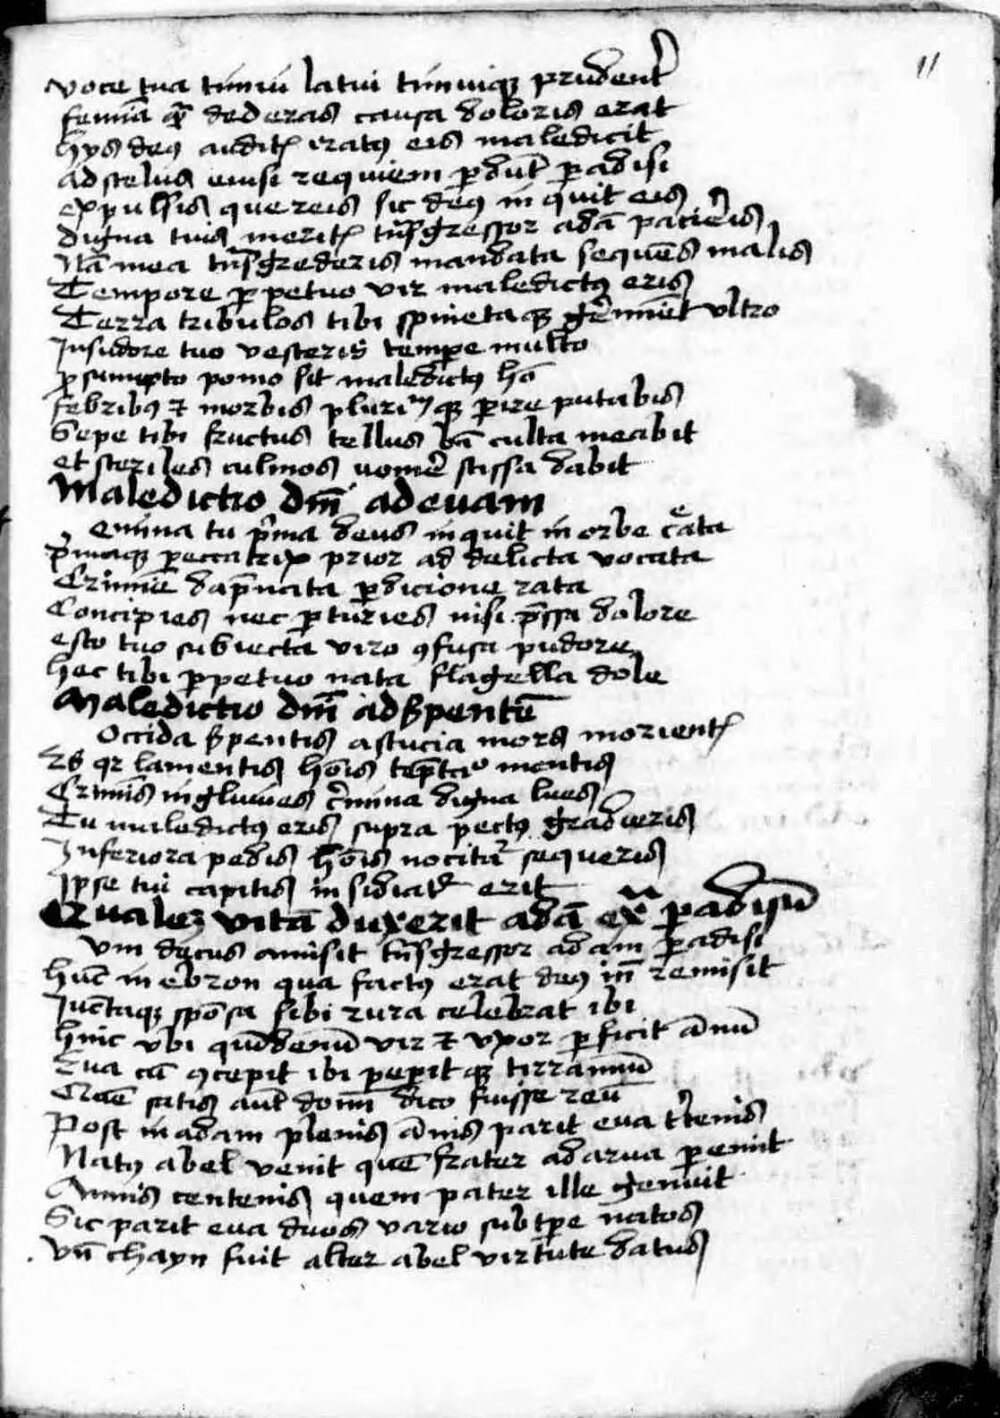 11
voce tua timui latui timuiq; prudent͛
femīa q̄ dederas causa doloris erat
hys deꝰ auditꝭ iratꝰ eis maledicit
ad scelus eiusi requiem ꝑdūt ꝑadisi
expulsis quereis sic deꝰ in quit eis
digna tuis meritꝭ tn̄sgressor adā pacieris
Nā mea tn̄sgrederis mandata sequēs malis
Tempore ꝑpetuo vir maledictꝰ eris
Terra tribulos tibi spinetaq; g͛minēt vltro
Insudore tuo vesceris tempe multo
ꝓ sumpto pomo sit maledictꝰ hō
febribꝰ ⁊ morbis plurimꝫ ꝑire putabis
Sepe tibi fructus tellus bn̄ culta meabit
et steriles culmos vom͛e scissa dabit
Maledictio dm̄ ad euam
emina tu p͛ma deus inquit in orbe c͛ata
p͛maq; peccatrix prior ad delicta vocata
Crimīe dāpnata ꝑdicione rata
Concipies nec ꝑturies nisi p̄ssa dolore
esto tuo subiecta viro ꝯfusa pudore
hec tibi ꝑpetuo nata flagella dole
Maledictio dm̄ ad ẜpentē
Occida ẜpentis astucia mors morientꝭ
lamentis hōis mentis
Crimīs ingluuies c͛mina digna lues
Tu maledictꝰ eris supra pectꝰ gradieris
Inferiora pedis hōis sequeris
Ipse tui capitis in sidiat͛ erit
Qualeꝫ vitā duxerit adā ex͛ ꝑadisū
Vm decus amisit tn̄sgressor adam ꝑadisi
hūc in ebron qua factꝰ erat deꝰ remisit
Iūctaq; spōsa sibi rura celebrat ibi
hinc vbi quīdenū vir ⁊ vxor ꝑficit ānū
Eua cā ꝯcepit ibi peperit q; tirrannū
satis dico fuisse reū
Post adam plenis ānis parit eua t͛tenis
Natꝰ abel venit quē frater ad arua ꝑemit
Annis centenis quem pater ille genuit
Sic parit eua duos vario sub tpe natos
vn̄ chayn fuit alter abel virtute datus